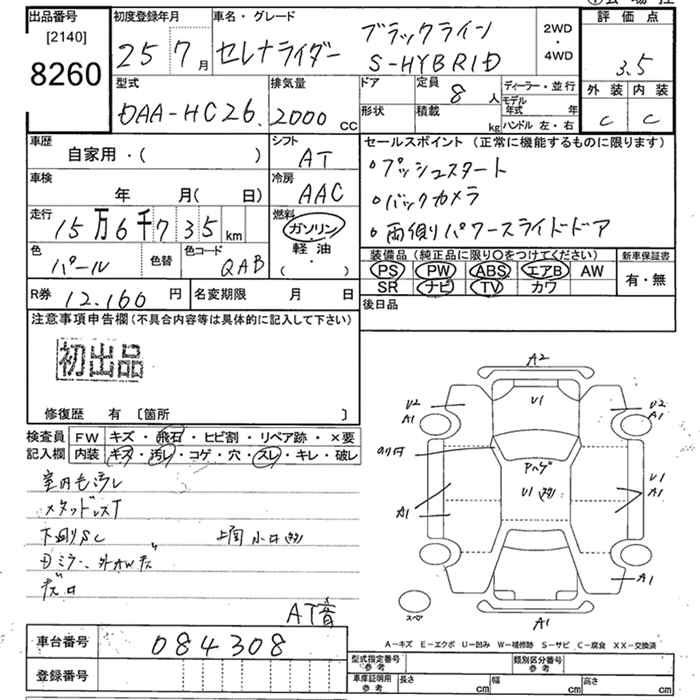 出品番号
[2140]
8260
初度登録年月
25 7月
車名・グレード
セレナライダー ブラックライン S-HYBRID
2WD
・
4WD
評価点
3.5
外装 内装
C C
型式
DAA-HC26.
排気量
2000 cc
ドア
形状
定員
8人
積載
kg
ディーラー・並行
モデル年式 年
ハンドル 左・右
車歴
自家用・( )
シフト
AT
車検
年 月( 日)
冷房
AAC
走行
15万6千735 km
燃料
ガソリン・軽油・( )
色
パール
色替
色コード
QAB
R券 12.160円
名変期限 月 日
セールスポイント(正常に機能するものに限ります)
・プッシュスタート
・バックカメラ
・両側パワースライドドア
装備品(純正品に限り○をつけてください)
新車保証書
PS PW ABS エアB AW
SR ナビ TV カワ
有・無
後日品
注意事項申告欄(不具合内容等は具体的に記入して下さい)
初出品
修復歴 有 [箇所 ]
検査員記入欄
FW キズ・飛石・ヒビ割・リペア跡・×要
内装 キズ・汚レ・コゲ・穴・スレ・キレ・破レ
室内毛汚レ
下回りSC
AT音
A2
U1
U2
A1
U2
A1
U1
U1
A1
A1
A1
A1
スペア
A-キズ E-エクボ U-凹み W-補修跡 S-サビ C-腐食 XX-交換済
車台番号 084308
登録番号
型式指定番号 参考
類別区分番号 参考
車庫証明用 参考
長さ cm 幅 cm 高さ cm